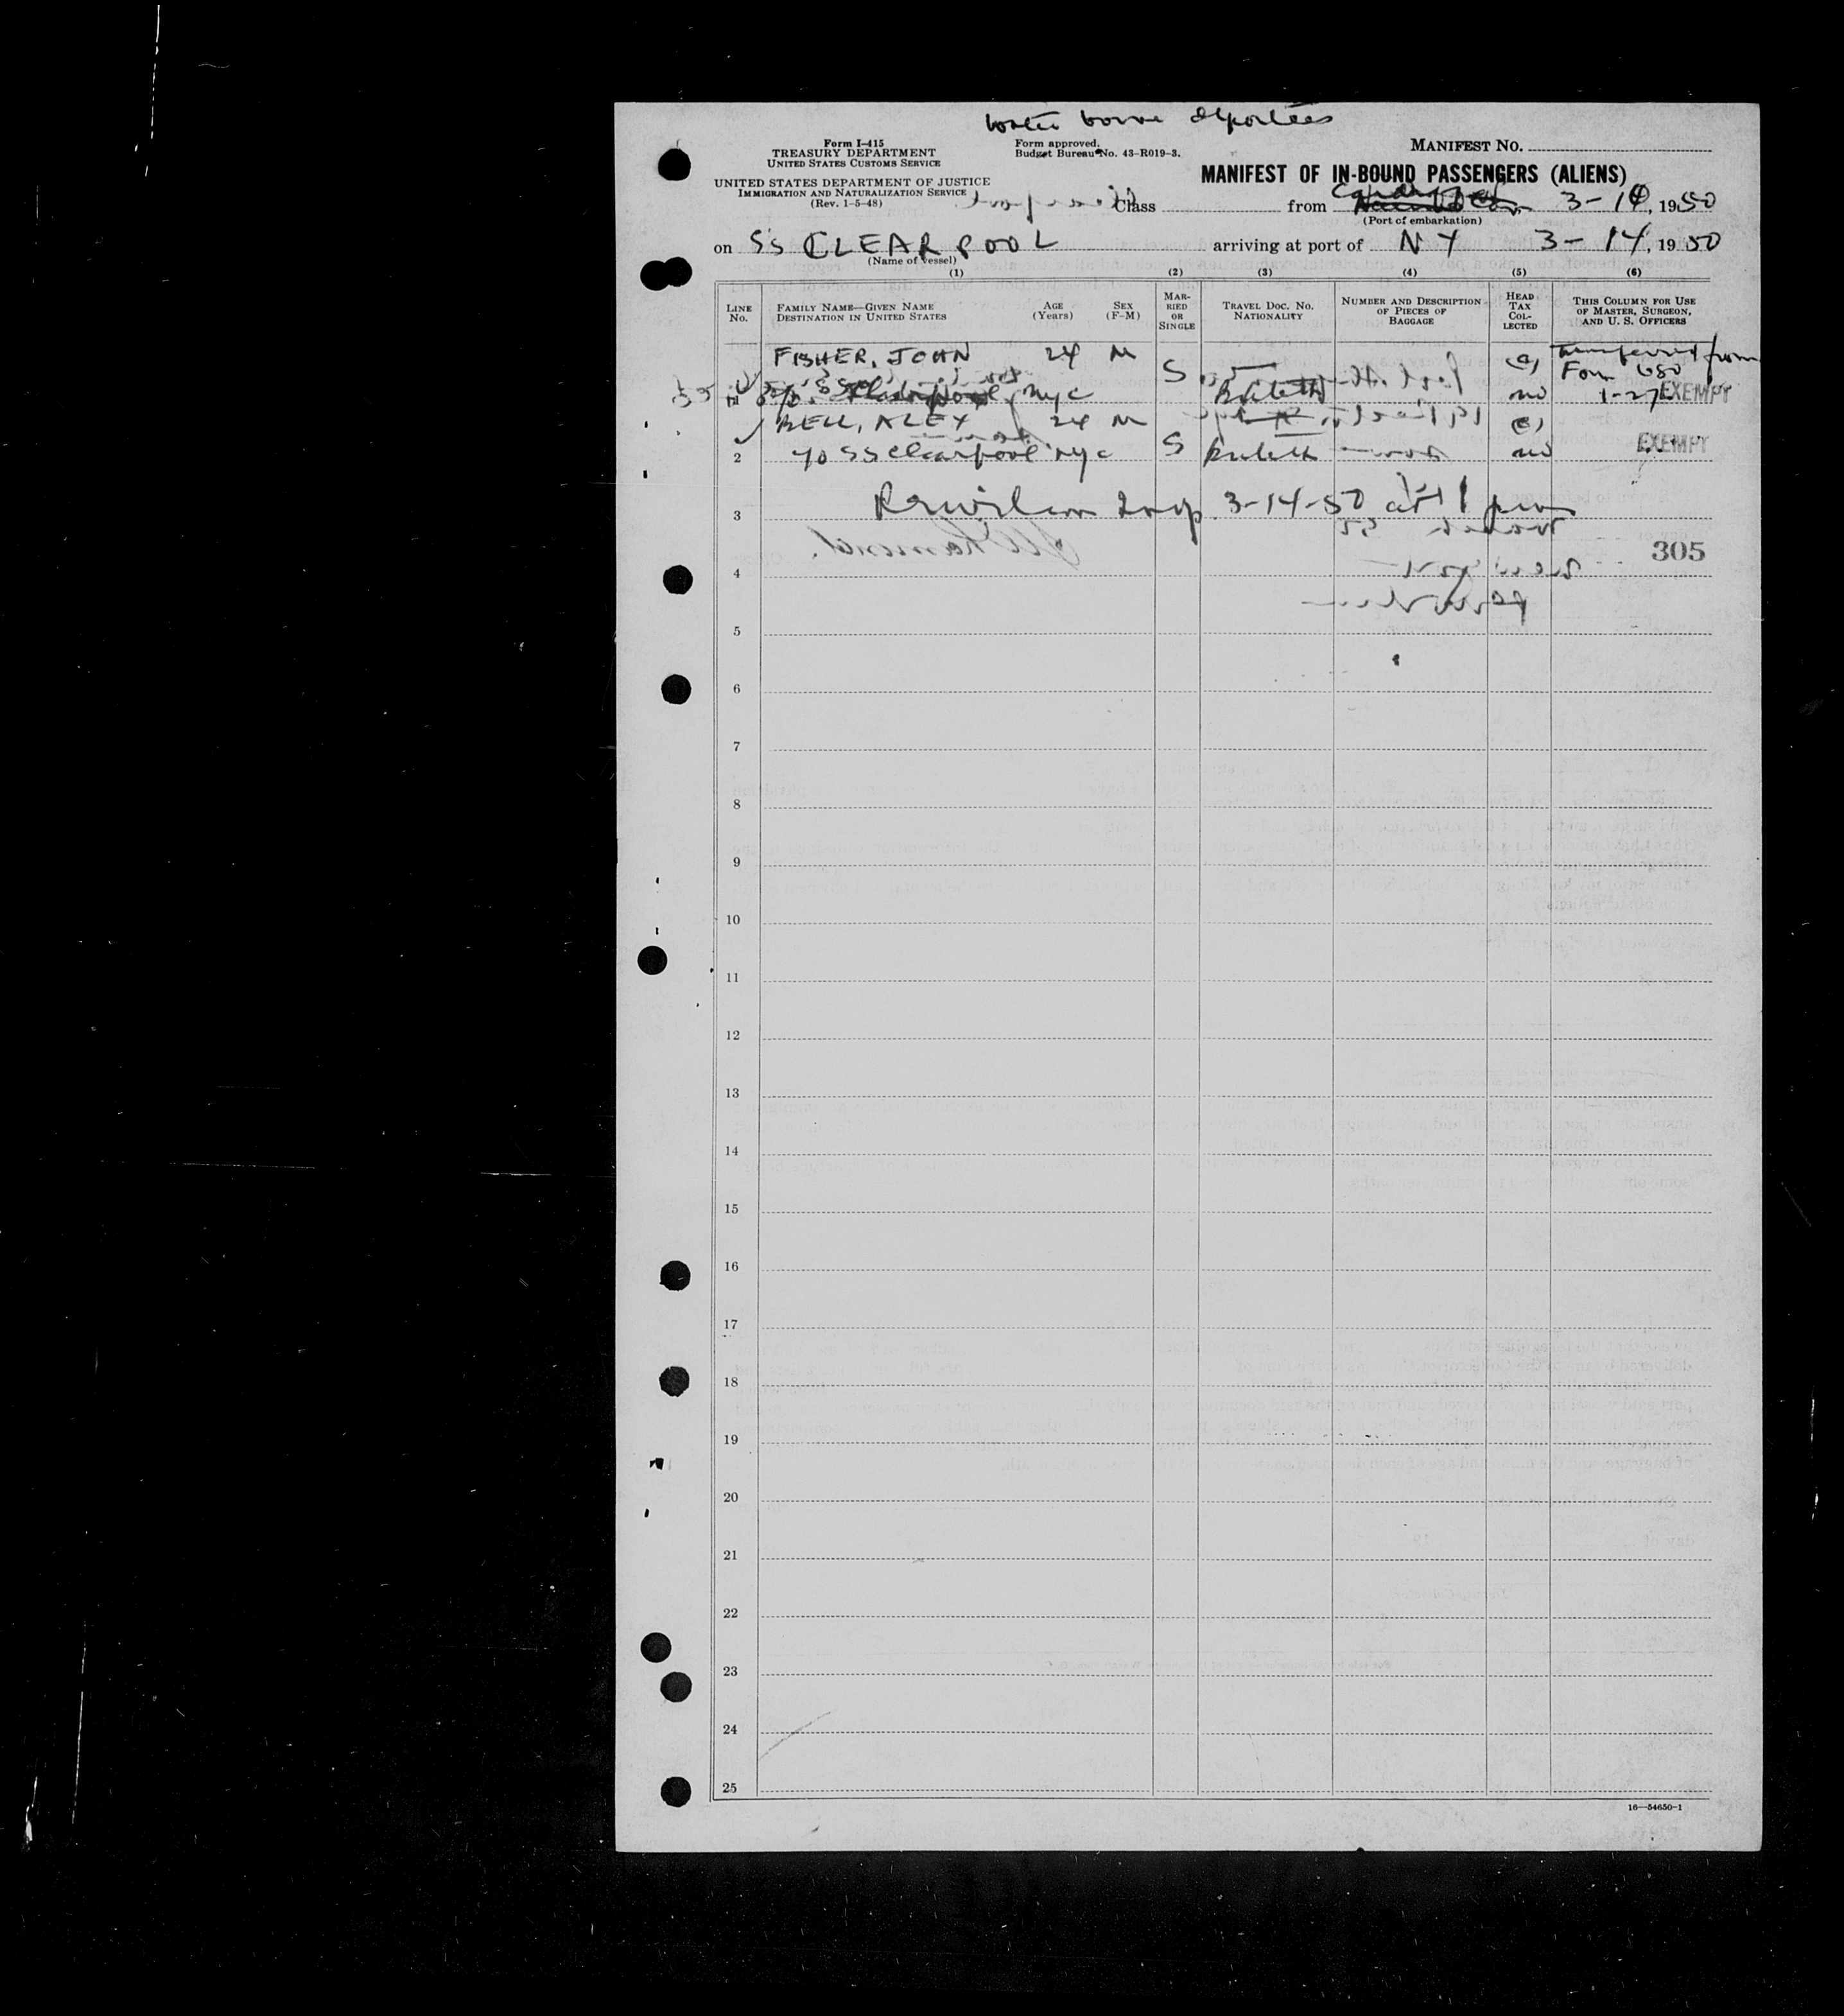 water borne deportees
Form I-415
TREASURY DEPARTMENT
UNITED STATES CUSTOMS SERVICE
UNITED STATES DEPARTMENT OF JUSTICE
IMMIGRATION AND NATURALIZATION SERVICE
(Rev. 1-5-48)
Form approved.
Budget Bureau No. 43-R019-3.
MANIFEST NO.
MANIFEST OF IN-BOUND PASSENGERS (ALIENS)
Class from 3-14, 1950
(Port of embarkation)
on SS CLEARPOOL arriving at port of NY 3-14, 1950
(Name of vessel)
(1) (2) (3) (4) (5) (6)
LINE No.
FAMILY NAME—GIVEN NAME
DESTINATION IN UNITED STATES
AGE (Years)
SEX (F-M)
MARRIED OR SINGLE
TRAVEL DOC. NO.
NATIONALITY
NUMBER AND DESCRIPTION OF PIECES OF BAGGAGE
HEAD TAX COLLECTED
THIS COLUMN FOR USE OF MASTER, SURGEON, AND U. S. OFFICERS
FISHER, JOHN 24 M S transferred from
Form 680
c/o SS Clearpool, NYC British no EXEMPT
BELL, ALEX 24 M
2 c/o SS Clearpool NYC S British no EXEMPT
3 Insp. 3-14-50 at 1 pm
305
4
5
6
7
8
9
10
11
12
13
14
15
16
17
18
19
20
21
22
23
24
25
16—54650-1